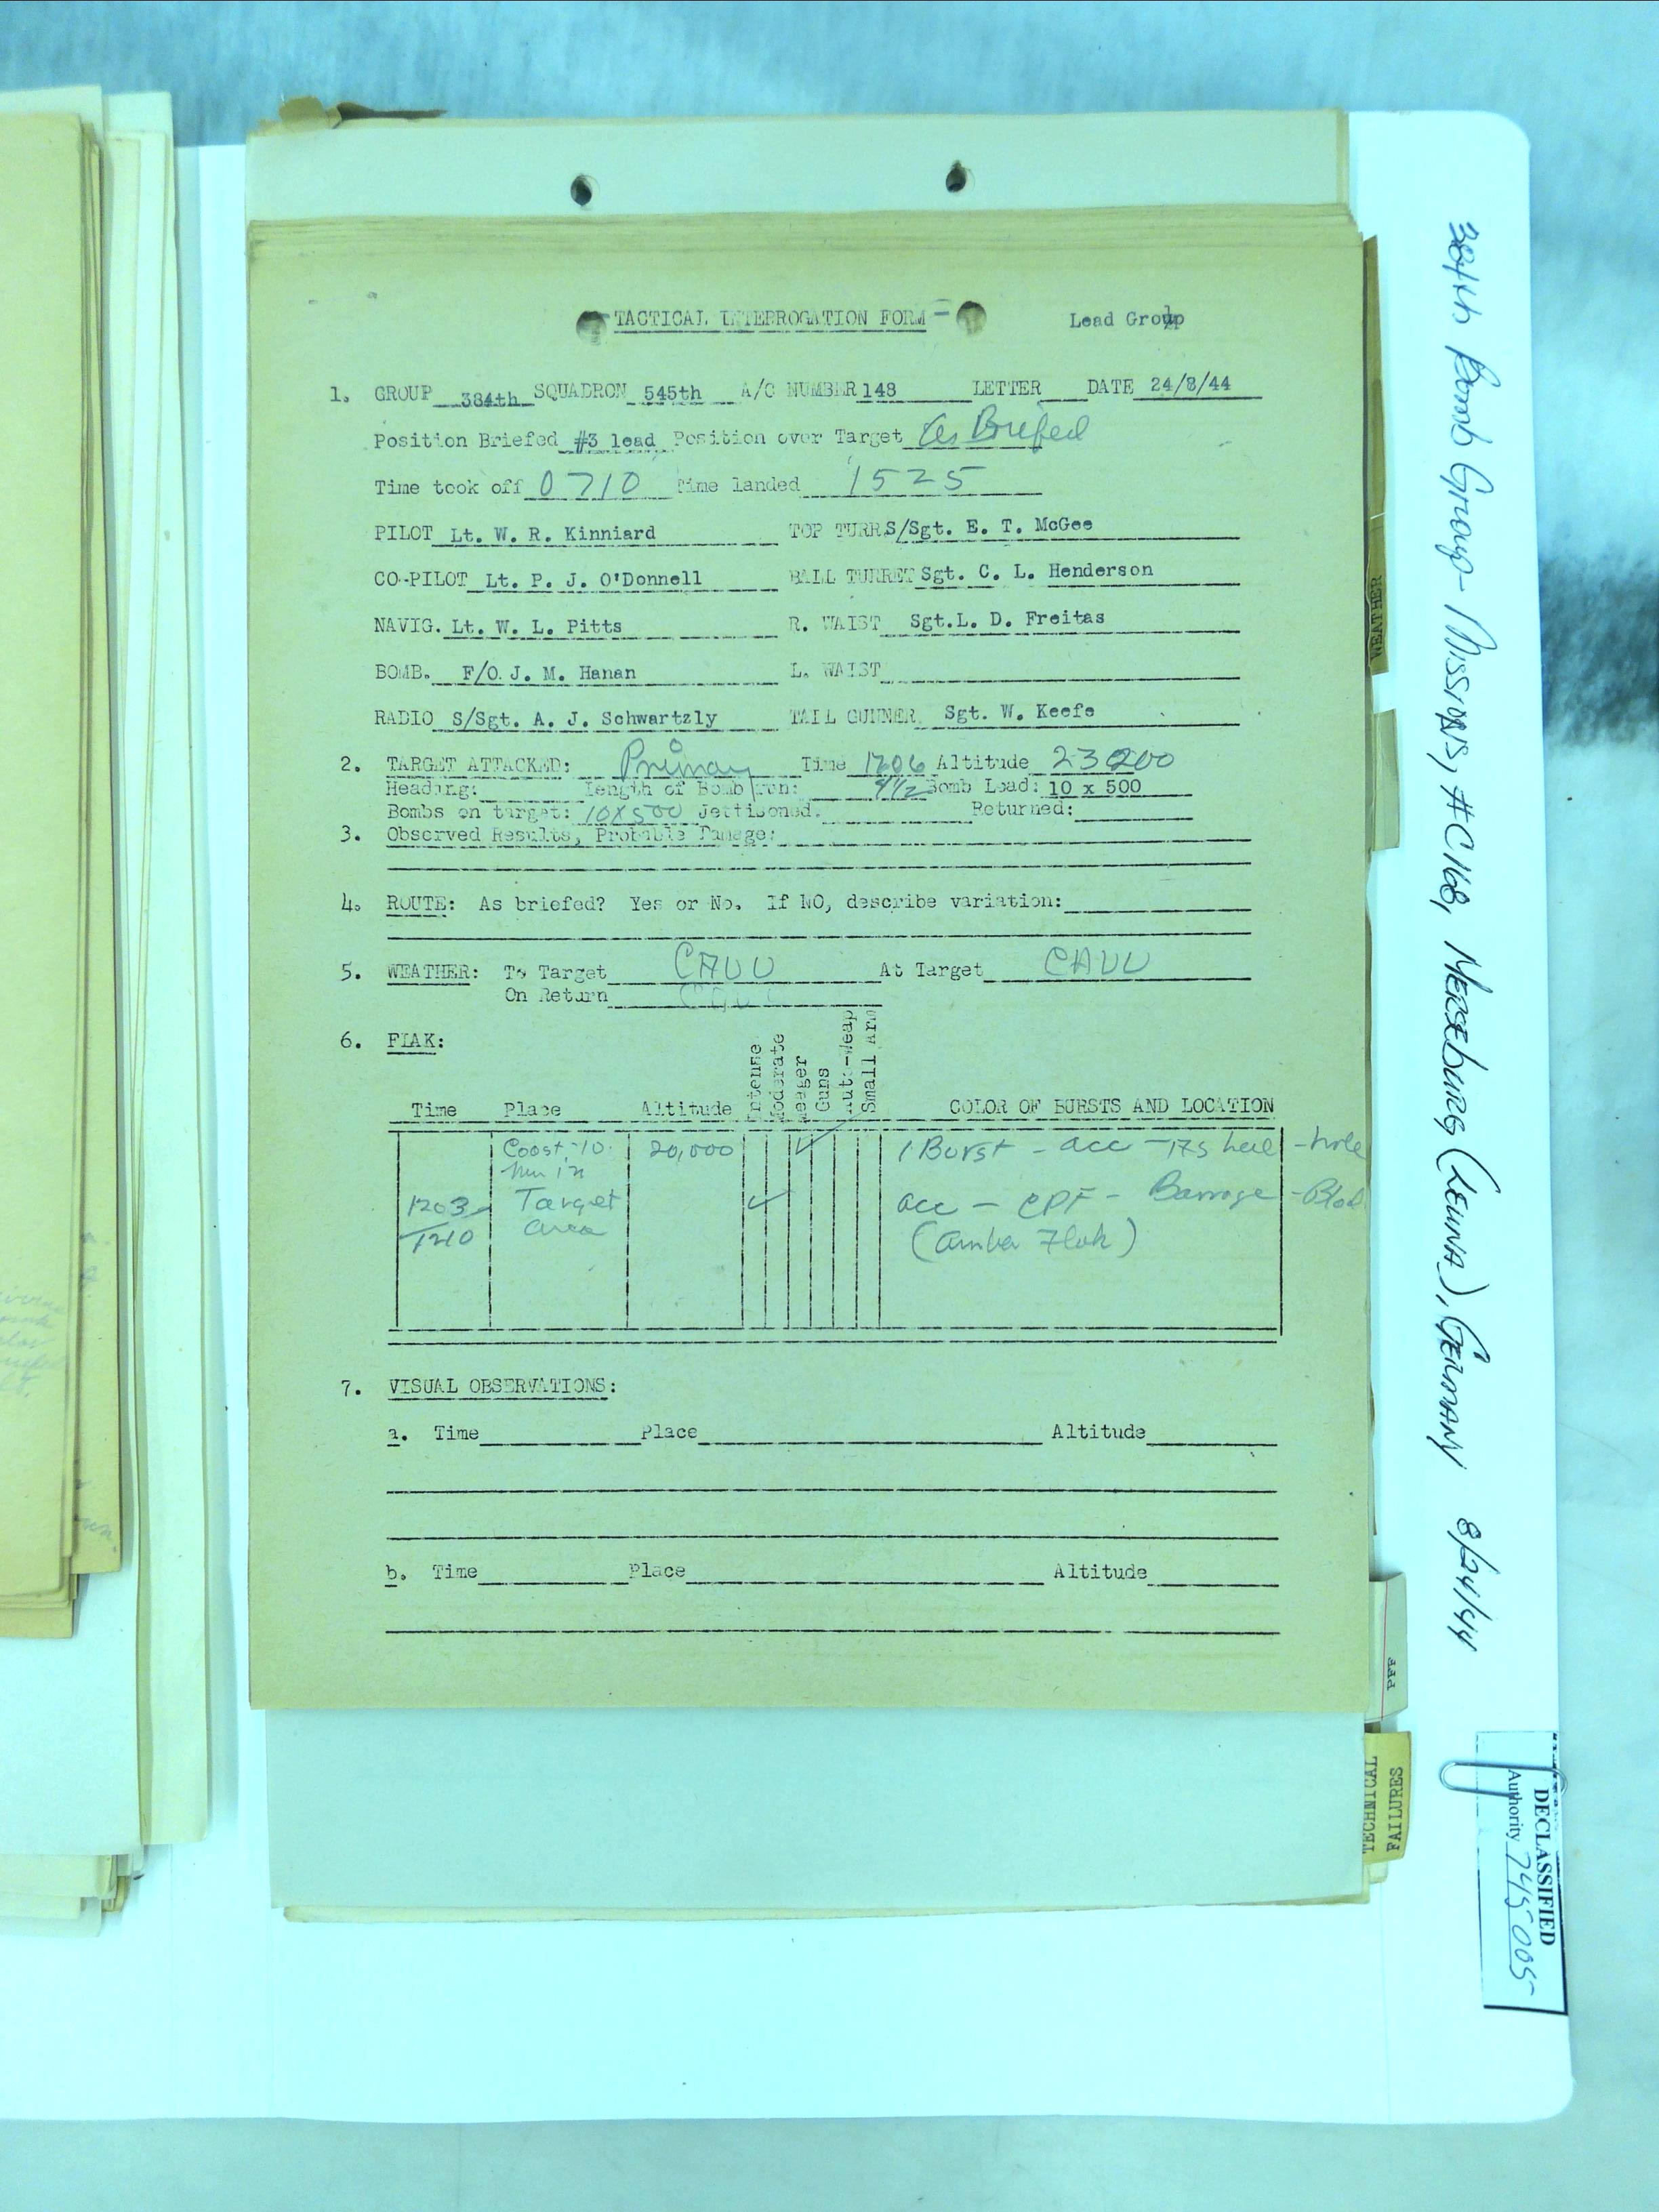 TACTICAL INTERROGATION FORM - Lead Group
1. GROUP 384th SQUADRON 545th A/C NUMBER 148 LETTER DATE 24/8/44
Position Briefed #3 lead Position over Target As Briefed
Time took off 0710 Time landed 1525
PILOT Lt. W. R. Kinniard TOP TURR S/Sgt. E. T. McGee
CO-PILOT Lt. P. J. O'Donnell BALL TURRET Sgt. C. L. Henderson
NAVIG. Lt. W. L. Pitts R. WAIST Sgt. L. D. Freitas
BOMB. F/O J. M. Hanan L. WAIST
RADIO S/Sgt. A. J. Schwartzly TAIL GUNNER Sgt. W. Keefe
2. TARGET ATTACKED: Primary Time 1206 Altitude 23200
Heading: Length of Bomb run: Bomb Load: 10 x 500
Bombs on target: 10x500 Jettisoned. Returned:
3. Observed Results, Probable Damage:
4. ROUTE: As briefed? Yes or No. If NO, describe variation:
5. WEATHER: To Target CAVU At Target CAVU
On Return CAVU
6. FLAK:
Time Place Altitude Intense Moderate Meager Guns Auto-Weap Small Arm COLOR OF BURSTS AND LOCATION
Coast-10 20,000 1 Burst - acc - - hole
min in
1203 Target acc - CPF - Barrage -
1210 area (Amber Flak)
7. VISUAL OBSERVATIONS:
a. Time Place Altitude
b. Time Place Altitude
WEATHER
PFF
TECHNICAL
FAILURES
384th Bomb Group - Missions, #C168, Merseburg (Leuna), Germany 8/24/44
DECLASSIFIED
Authority 745005